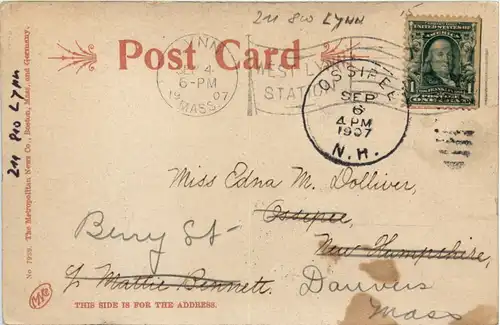 211 PRO LYNN
15
Post Card
LYNN
SEP 4
6-PM
1907
MASS.
WEST LYNN
STATION
OSSIPEE
SEP
6
4 PM
1907
N.H.
1
FRANKLIN
POSTAGE
ONE CENT
Miss Edna M. Dolliver,
Ossipee,
Berry St-
New Hampshire,
c/o Mattie Bennett.
Danvers
Mass
THIS SIDE IS FOR THE ADDRESS.
211 PRO LYNN
No. 7929. The Metropolitan News Co., Boston, Mass. and Germany.